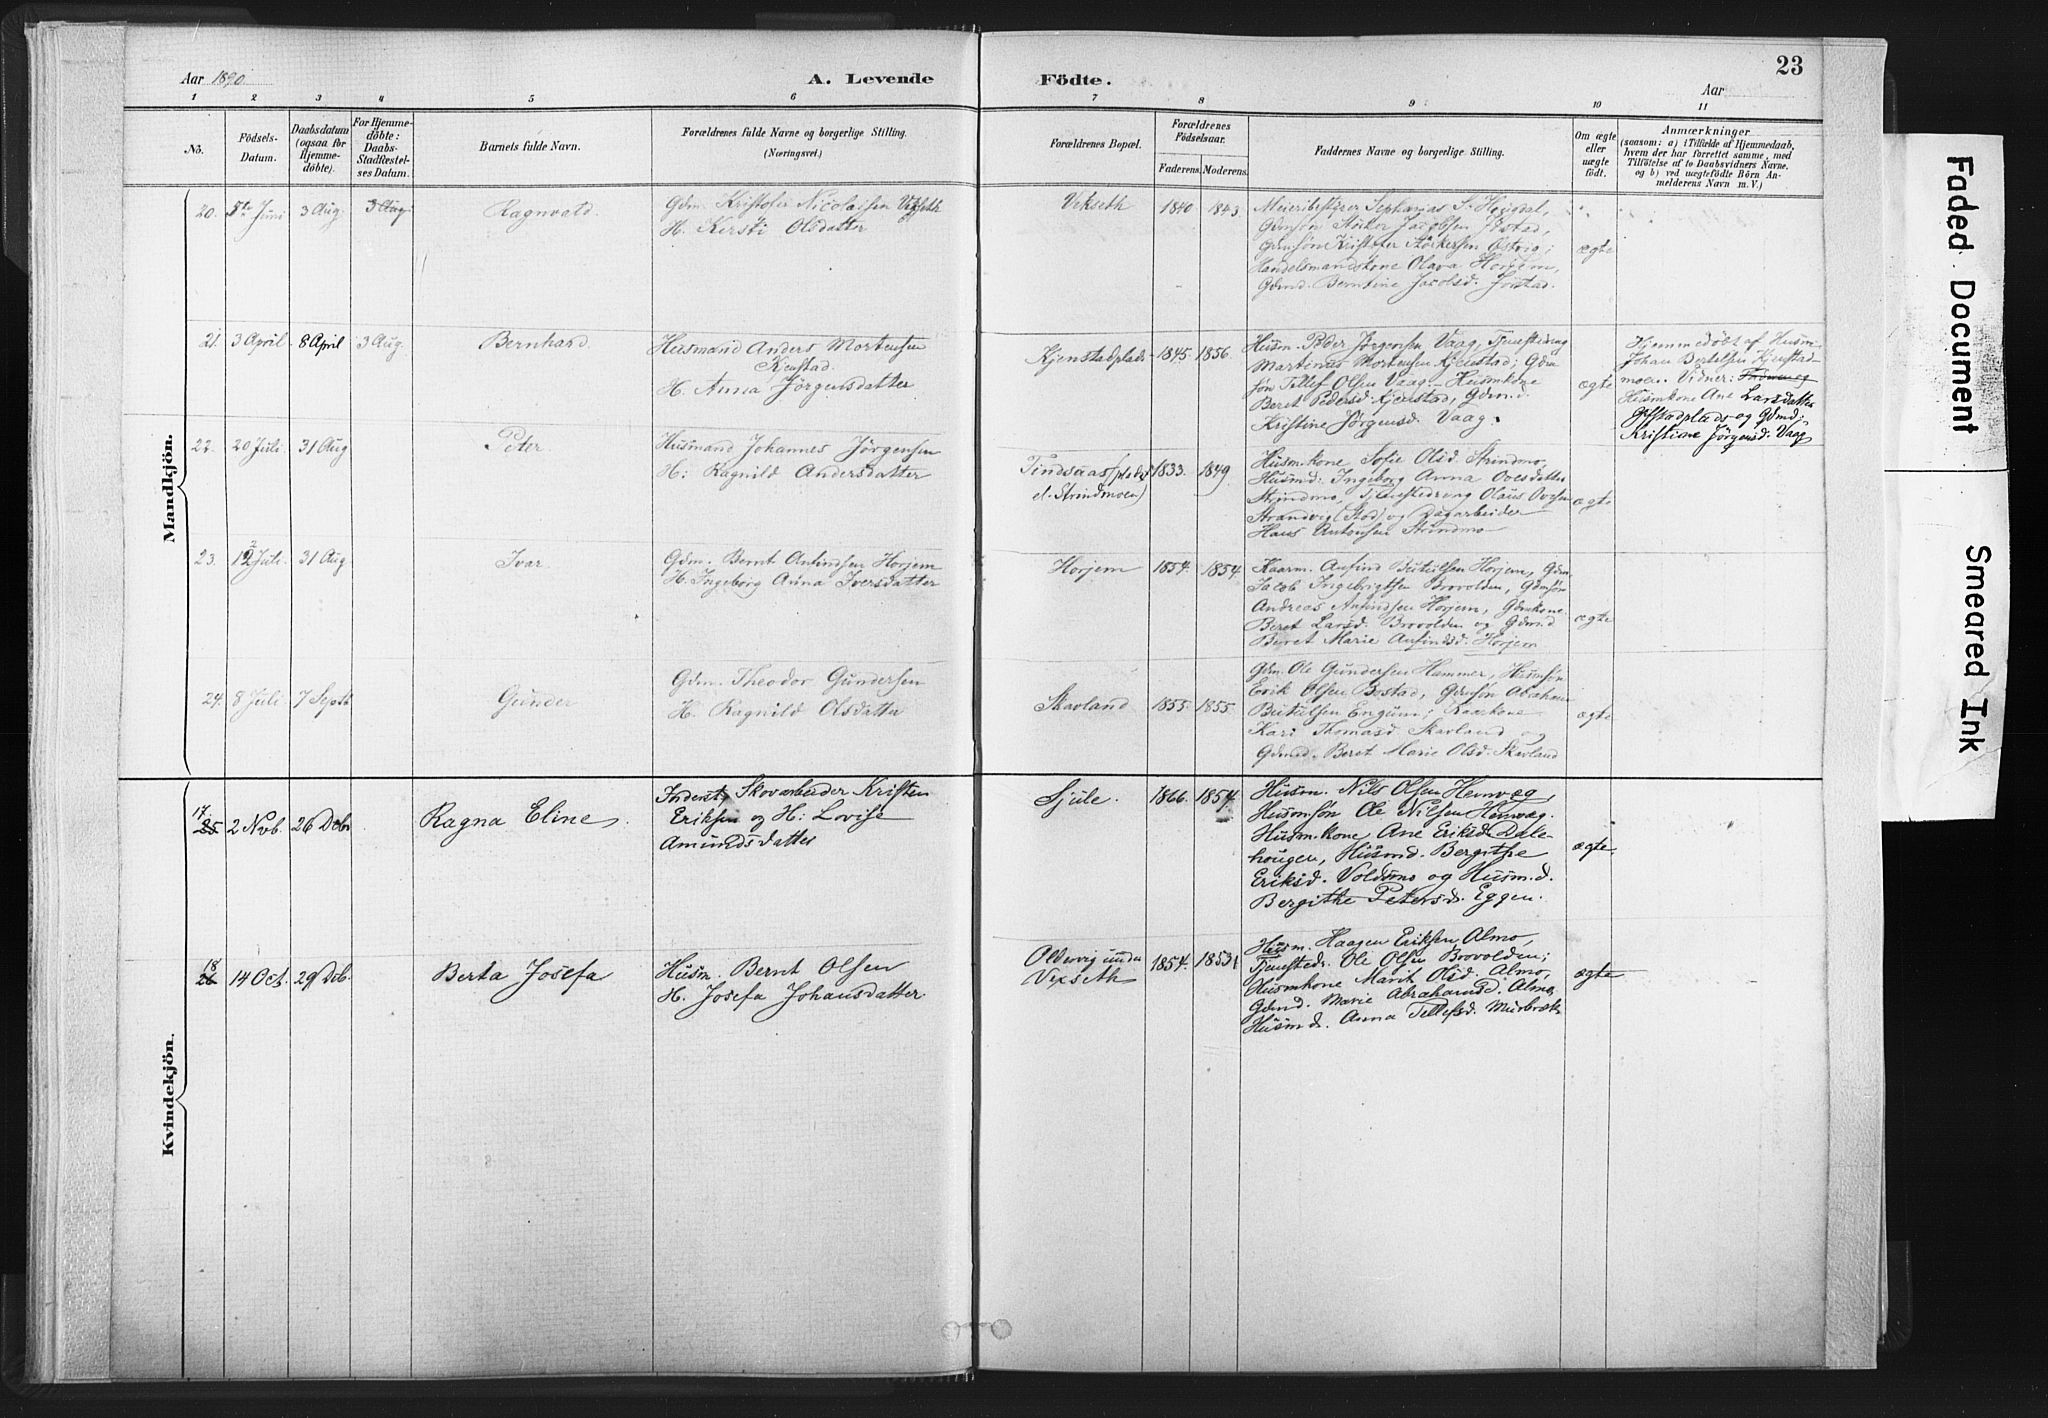 Aar 1890.
A. Levende
Födte.
Aar
23
1 2 3 4 5 6 7 8 9 10 11
No.
Födsels-
Datum.
Daabsdatum
(ogsaa for
Hjemme-
döbte).
For Hjemme-
döbte:
Daabs-
Stadfæstel-
ses Datum.
Barnets fulde Navn.
Forældrenes fulde Navne og borgerlige Stilling.
(Næringsvei.)
Forældrenes Bopæl.
Forældrenes
Födselsaar.
Faderens. Moderens.
Faddernes Navne og borgerlige Stilling.
Om ægte
eller
uægte
födt.
Anmærkninger
(saasom: a) i Tilfælde af Hjemmedaab,
hvem der har forrettet samme, med
Tilföielse af to Daabsvidners Navne.
og b) ved uægtefödte Börn An-
melderens Navn m. V.)
Mandkjön.
20. 5te Juni 3 Aug. 3 Aug.
Ragnvald.
Gdm. Kristofer Nicolaisen Vekseth
H. Kersti Olsdatter
Vekseth 1840 1843.
Meieribestyrer Sepharias S. Hojsdal,
Gdmsøn Størker Jacobsen Jøstad,
Gdmsøn Kristofer Størkersen Østvig;
Handelsmandskone Olava Horjem,
Gdmd. Berntine Jacobsd. Jøstad.
ægte
21. 3 April 8 April 3 Aug.
Bernhard.
Husmand Anders Mortensen
Kjenstad.
H. Anna Jørgensdatter
Kjenstadplads 1845. 1856.
Husm. Peder Jørgensen Vaag, Tjenestedreng
Martinus Mortensen Kjenstad, Gdm
søn Tellef Olsen Vaag - Husmkone
Beret Pedersd. Kjenstad, Gdm.d.
Kristine Jørgensd. Vaag.
ægte
Hjemmedøbt af Husm
Johan Bertelsen Kjenstad-
moen. Vidner:
Husmkone Ane Larsdatter
plads og Gdmd.
Kristine Jørgensd. Vaag
22. 20 Juli 31 Aug
Peter
Husmand Johannes Jørgensen
H: Ragnild Andersdatter
Tindsaas(plads
el. Strindmoen) 1833. 1849.
Husm.kone Sofie Olsd. Strindmo
Husmd: Ingeborg Anna Ovesdatter
Strindmo, Tjenestedreng Olaus Ovesen
Strandvig (Stod) og Dagarbeider
Hans Antonsen Strindmo
ægte
23. 12 Juli. 31 Aug
Ivar.
Gdm. Bernt Anfindsen Horjem
H. Ingeborg Anna Iversdatter
Horjem 1854. 1854.
Kaarm. Anfind Beitulsen Horjem, Gdm.
Jacob Ingebrigtsen Brovolden, Gdmsøn
Andreas Anfindsen Horjem, Gdmkone.
Beret Larsd. Brovolden og Gdm.d
Beret Marie Anfindsd. Horjem
ægte
24. 8 Juli 7 Septb
Gunder
Gdm. Theodor Gundersen
H. Ragnild Olsdatter
Skavland 1855. 1855.
Gdm. Ole Gundersen Hammer, Husmsøn
Erik Olsen Bostad, Gdmsøn Abraham
Beitulsen Engum; Kaarkone
Kari Thomasd. Skavland og
Gdmd. Beret Marie Olsd. Skavland
ægte
Kvindekjön.
17
25 2 Nvb. 26 Debr
Ragna Eline.
Inderst, Skovarbeider Kristen
Eriksen og H: Lovise
Amundsdatter
Sjule. 1866. 1854.
Husm. Nils Olsen Hemvæg
Husm.søn Ole Nilsen Hemvæg.
Husm.kone Ane Eriksd. Dale-
hougen, Husmd. Bergithe
Eriksd. Voldsmo og Husm.d.
Bergithe Petersd. Eggen.
ægte.
18
26 14 Oct. 29 Deb.
Berta Josefa
Husm. Bernt Olsen
H. Josefa Johansdatter
Oldervig under
Vexseth 1854. 1853.
Husm. Haagen Eriksen Almo,
Tjenestedr. Ole Olsen Brovolden;
Husmkone Marit Olsd. Almo,
Gdmd. Marie Abrahamsd. Almo,
Husmd. Anna Tellefsd. Murbræk
ægte
Faded Document
Smeared Ink